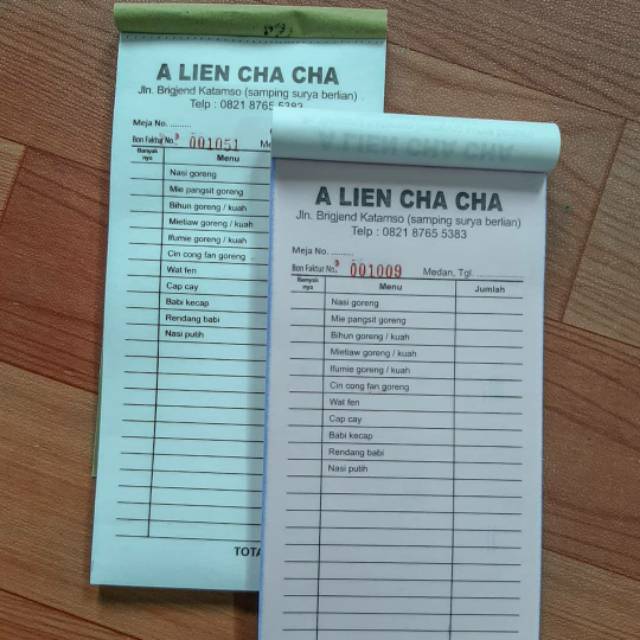 A LIEN CHA CHA
Jln. Brigjend Katamso (samping surya berlian)
Telp : 0821 8765 5383
Meja No. ..........
Bon Faktur No. 001051
Banyak nya Menu
Nasi goreng
Mie pangsit goreng
Bihun goreng / kuah
Mietiaw goreng / kuah
Ifumie goreng / kuah
Cin cong fan goreng
Wat fen
Cap cay
Babi kecap
Rendang babi
Nasi putih
TOTA
A LIEN CHA CHA
A LIEN CHA CHA
Jln. Brigjend Katamso (samping surya berlian)
Telp : 0821 8765 5383
Meja No. ..........
Bon Faktur No. 001009 Medan, Tgl. ..............
Banyak nya Menu Jumlah
Nasi goreng
Mie pangsit goreng
Bihun goreng / kuah
Mietiaw goreng / kuah
Ifumie goreng / kuah
Cin cong fan goreng
Wat fen
Cap cay
Babi kecap
Rendang babi
Nasi putih